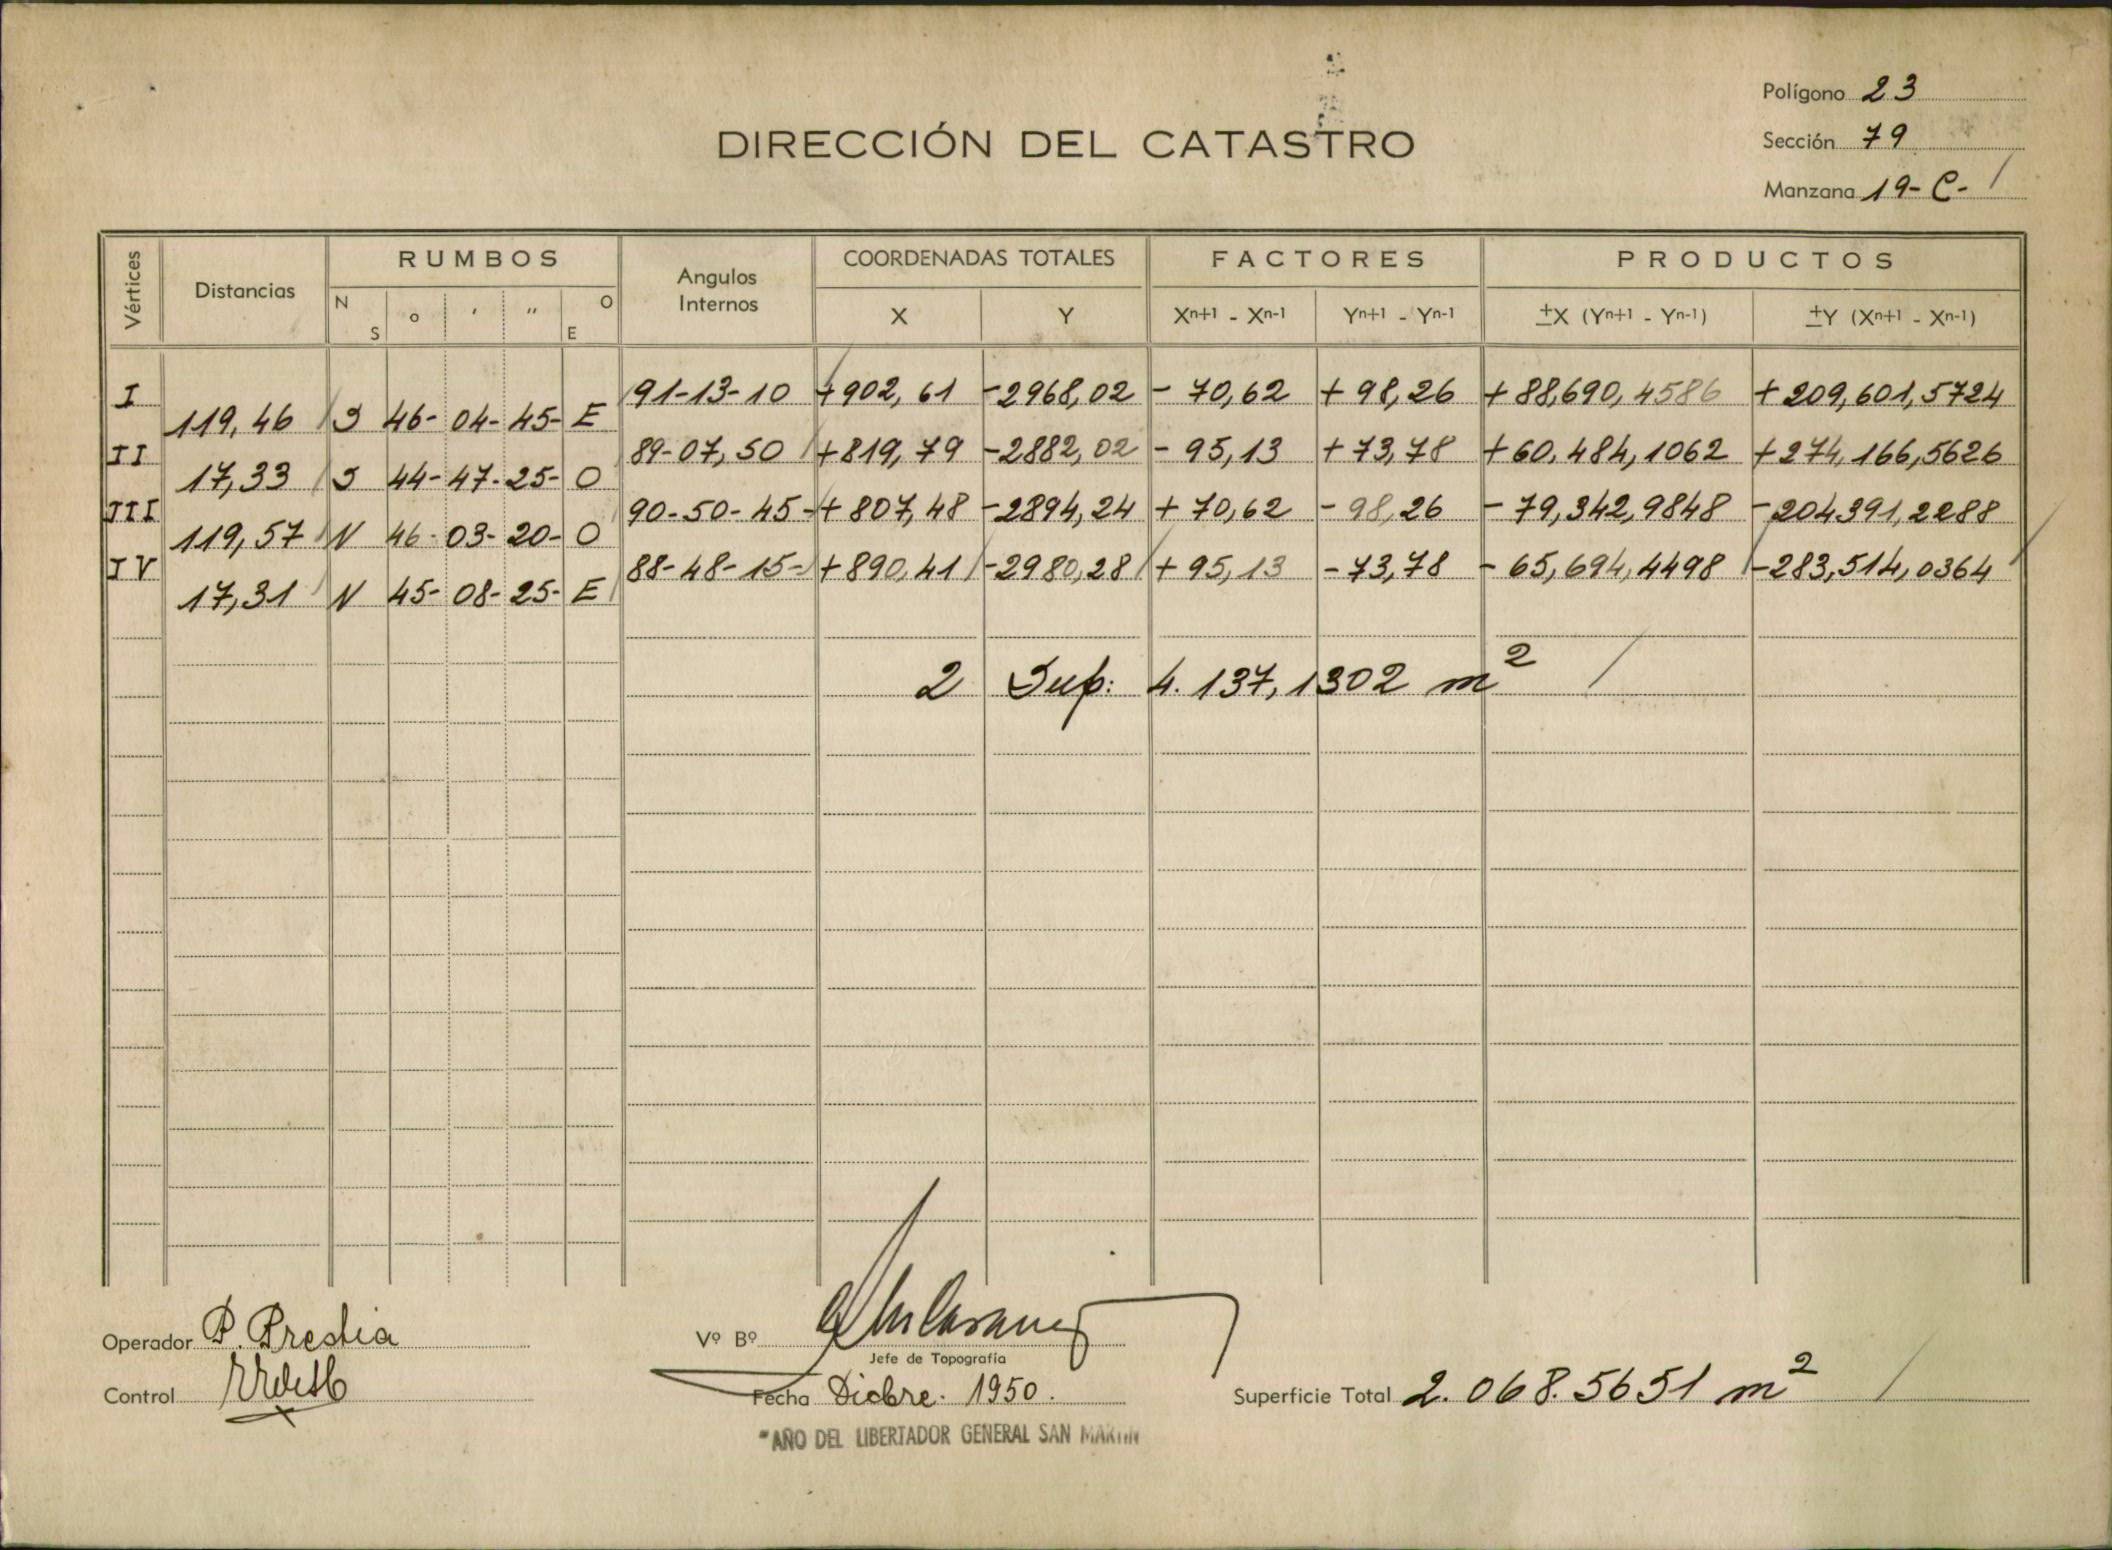 Polígono 23
DIRECCIÓN DEL CATASTRO
Sección 79
Manzana 19-C-
Vértices Distancias RUMBOS Angulos Internos COORDENADAS TOTALES FACTORES PRODUCTOS
N S o ' " O E X Y Xn+1 - Xn-1 Yn+1 - Yn-1 ±X (Yn+1 - Yn-1) ±Y (Xn+1 - Xn-1)
I 91-13-10 +902,61 -2968,02 - 70,62 + 98,26 +88,690,4586 +209,601,5724
119,46 S 46- 04- 45- E
II 89-07,50 +819,79 -2882,02 - 95,13 +73,78 +60.484,1062 +274,166,5626
17,33 S 44- 47- 25- O
III 90-50-45- +807,48 -2894,24 +70,62 -98,26 -79,342,9848 -204391,2288
119,57 N 46- 03- 20- O
IV 88-48-15- +890,41 -2980,28 +95,13 -73,78 -65,694,4498 -283,514,0364
17,31 N 45- 08- 25- E
2 Sup: 4.137,1302 m²
Operador P. Prestia
Vº Bº
Jefe de Topografía
Control
Fecha Dicbre. 1950.
Superficie Total 2.068.5651 m²
"AÑO DEL LIBERTADOR GENERAL SAN MARTIN